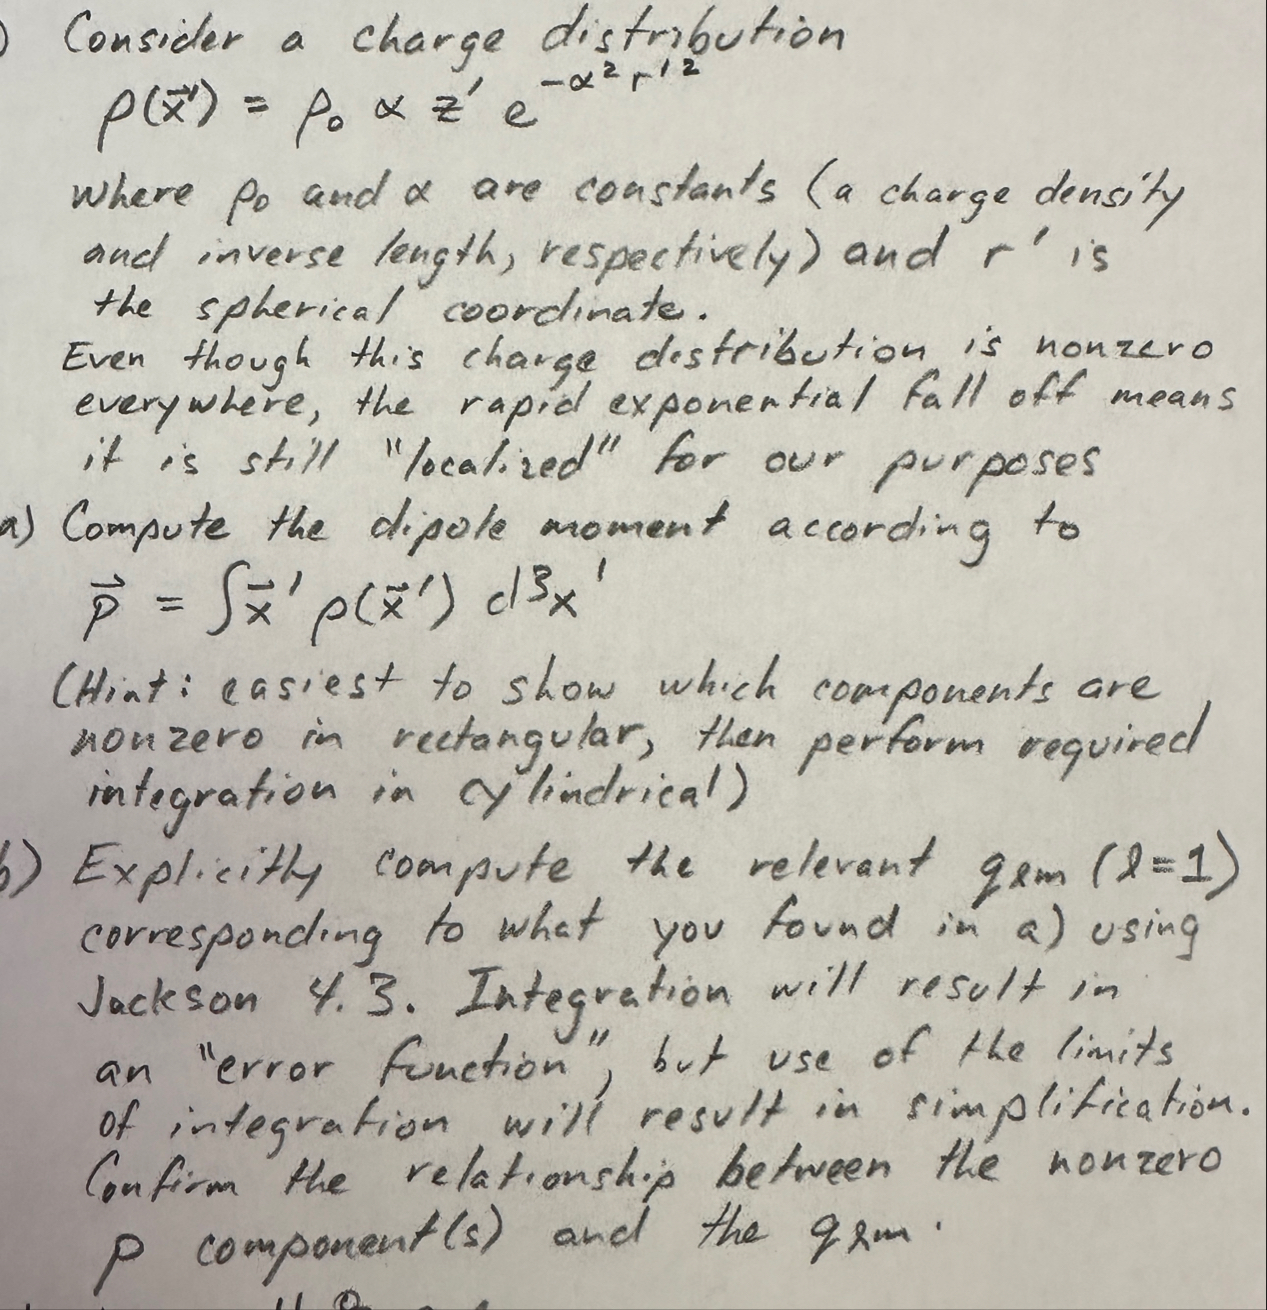 ) Consider a charge distribution
ρ(x⃗') = ρ₀ α z' e^(-α² r'²)
where ρ₀ and α are constants (a charge density
and inverse length, respectively) and r' is
the spherical coordinate.
Even though this charge distribution is nonzero
everywhere, the rapid exponential fall off means
it is still "localized" for our purposes
a) Compute the dipole moment according to
p⃗ = ∫x⃗' ρ(x⃗') d³x'
(Hint: easiest to show which components are
nonzero in rectangular, then perform required
integration in cylindrical)
b) Explicitly compute the relevant qℓm (ℓ=1)
corresponding to what you found in a) using
Jackson 4.3. Integration will result in
an "error function", but use of the limits
of integration will result in simplification.
Confirm the relationship between the nonzero
p component(s) and the qℓm.